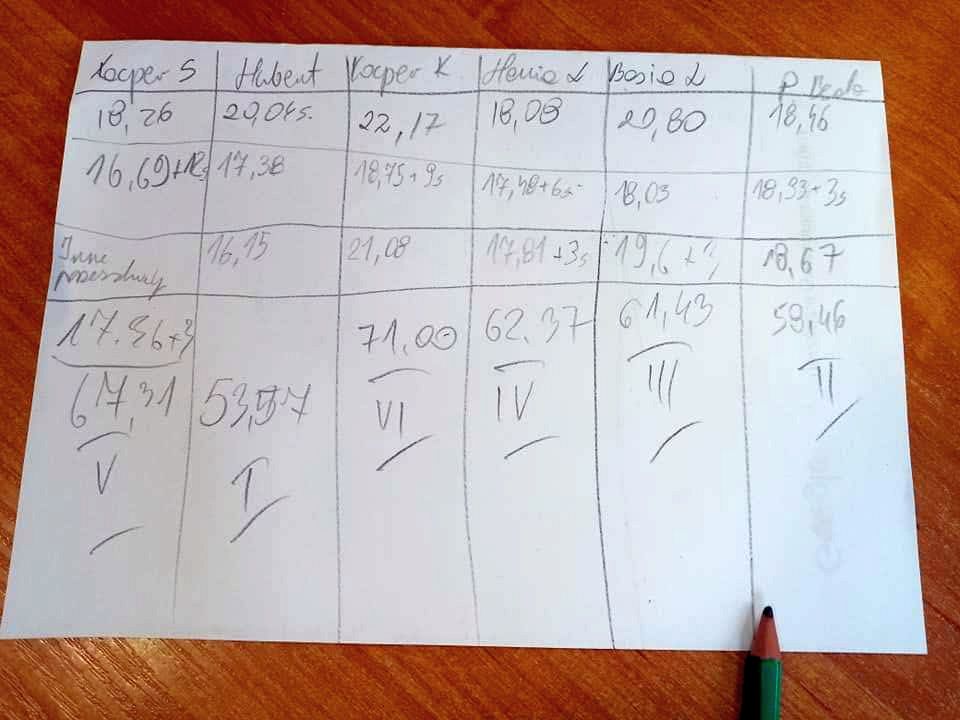 Kacper S Hubert Kacper K Hania L Basia L P Beata
18,26 20,04s. 22,17 18,08 20,80 18,46
16,69+12s 17,38 18,75+9s 17,48+6s 18,03 18,33+3s
Inne 16,15 21,08 17,81+3s 19,6+3 18,67
przeszkody
17.36+3 71,00 62.37 61,43 58,46
67,31 53,57 VI IV III II
V I